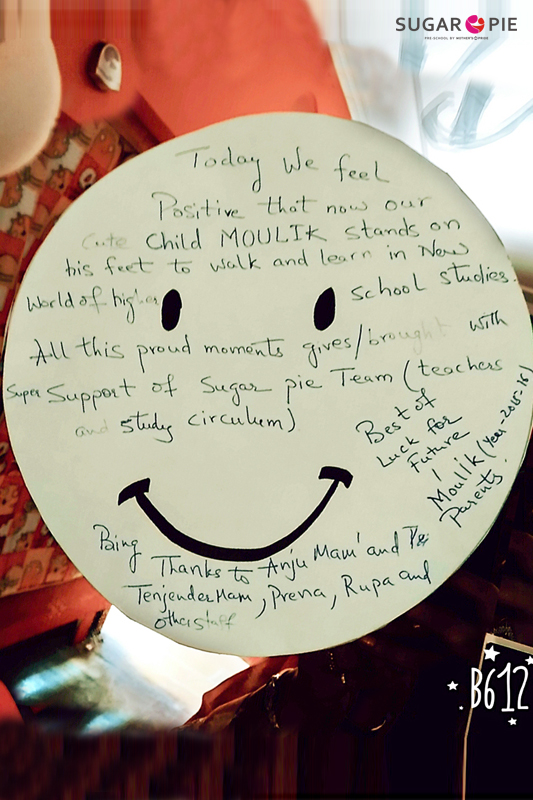 SUGAR PIE
PRE-SCHOOL BY MOTHER'S PRIDE
Today We feel
Positive that now our
Cute Child MOULIK stands on
his feet to walk and learn in New
World of higher school studies.
All this proud moments gives/brought with
Super Support of Sugar pie Team (teachers
and study circulum)
Best of
Luck for
Future
Moulik (Year-2015-16)
Parents.
Bing Thanks to Anju Mam' and
TenjenderMam, Prerna, Rupa and
otherstaff
B612